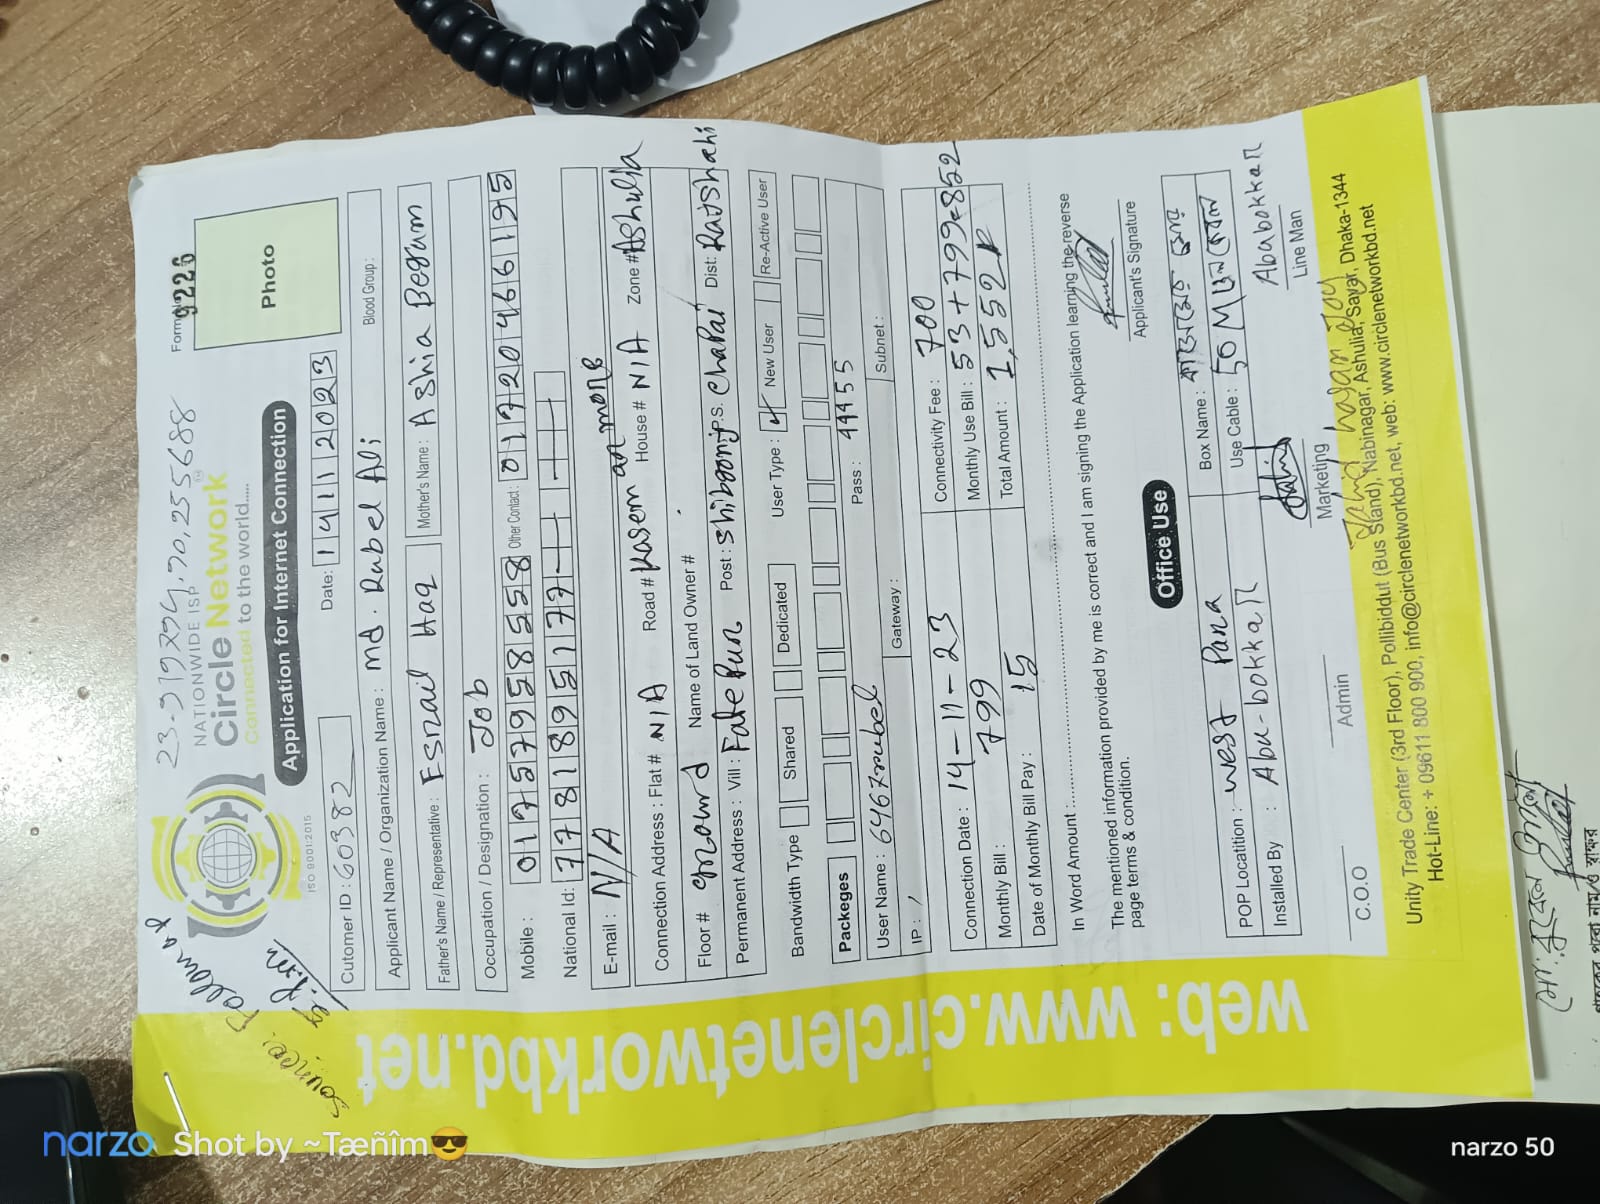 23.919794, 90.255688
NATIONWIDE ISP
Circle Network
Connected to the world.....
ISO 9001:2015
Form 9226
Application for Internet Connection
Photo
Cutomer ID : 60382 Date: 14 11 2023
Applicant Name / Organization Name : md. Rubel Ali Blood Group :
Father's Name / Representative : Esrail Haq Mother's Name : Ashia Begum
Occupation / Designation : Job
Mobile : 01757958558 Other Contact : 01720466195
National Id: 7781895177
E-mail : N/A
Connection Address : Flat # N/A Road # Kasem House # N/A Zone # Ashulia
Floor # ground Name of Land Owner #
Permanent Address : Vill : Post : P.S. Chapai Dist: Rajshahi
Bandwidth Type Shared Dedicated User Type : New User Re-Active User
Packeges
User Name : 6467rubel Pass : 4455
IP : Gateway : Subnet :
Connection Date : 14-11-23 Connectivity Fee : 700
Monthly Bill : 799 Monthly Use Bill : 53+799=852
Date of Monthly Bill Pay : 15 Total Amount : 1,552
In Word Amount :
The mentioned information provided by me is correct and I am signing the Application learning the reverse
page terms & condition.
Applicant's Signature
Office Use
POP Locatition : West Para Box Name :
Installed By : Abu-bokkar Use Cable : 50 M
Abubokkar
C.O.O Admin Marketing Line Man
Unity Trade Center (3rd Floor), Pollibiddut (Bus Stand), Nabinagar, Ashulia, Savar, Dhaka-1344
Hot-Line: + 09611 800 900, info@circlenetworkbd.net, web: www.circlenetworkbd.net
web: www.circlenetworkbd.net
narzo Shot by ~Tæñîm😎
narzo 50